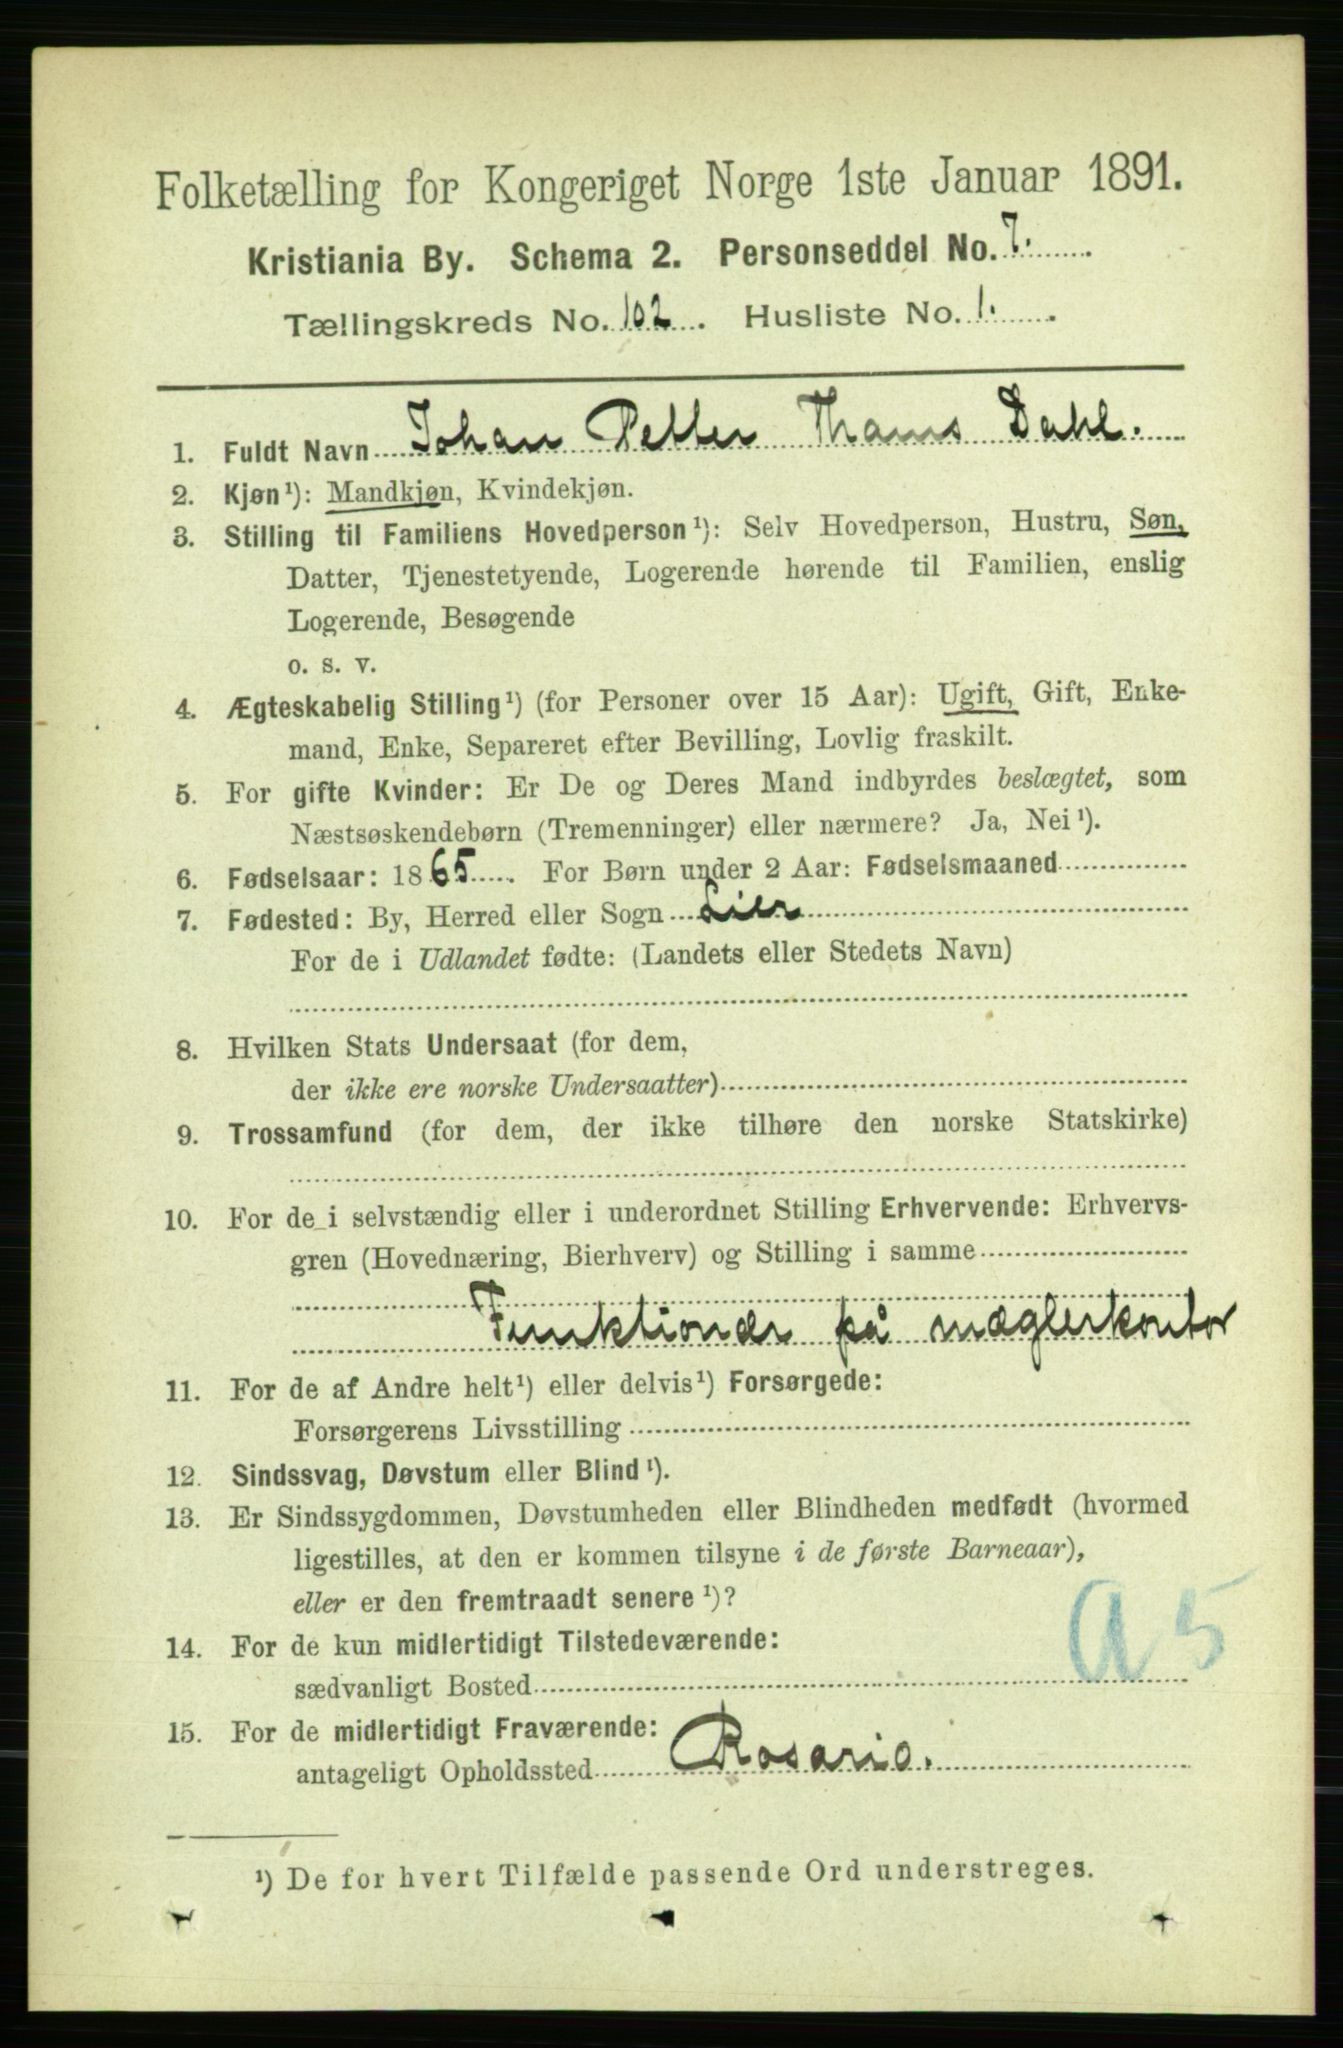 Folketælling for Kongeriget Norge 1ste Januar 1891.
Kristiania By. Schema 2. Personseddel No. 7.
Tællingskreds No. 102. Husliste No. 1.
1. Fuldt Navn Johan Petter Thams Dahl.
2. Kjøn¹): Mandkjøn, Kvindekjøn.
3. Stilling til Familiens Hovedperson¹): Selv Hovedperson, Hustru, Søn,
Datter, Tjenestetyende, Logerende hørende til Familien, enslig
Logerende, Besøgende
o. s. v.
4. Ægteskabelig Stilling¹) (for Personer over 15 Aar): Ugift, Gift, Enke-
mand, Enke, Separeret efter Bevilling, Lovlig fraskilt.
5. For gifte Kvinder: Er De og Deres Mand indbyrdes beslægtet, som
Næstsøskendebørn (Tremenninger) eller nærmere? Ja, Nei¹).
6. Fødselsaar: 1865. For Børn under 2 Aar: Fødselsmaaned
7. Fødested: By, Herred eller Sogn Lier
For de i Udlandet fødte: (Landets eller Stedets Navn)
8. Hvilken Stats Undersaat (for dem,
der ikke ere norske Undersaatter)
9. Trossamfund (for dem, der ikke tilhøre den norske Statskirke)
10. For de i selvstændig eller i underordnet Stilling Erhvervende: Erhvervs-
gren (Hovednæring, Bierhverv) og Stilling i samme
Funktionær på mæglerkontor
11. For de af Andre helt¹) eller delvis¹) Forsørgede:
Forsørgerens Livsstilling
12. Sindssvag, Døvstum eller Blind¹).
13. Er Sindssygdommen, Døvstumheden eller Blindheden medfødt (hvormed
ligestilles, at den er kommen tilsyne i de første Barneaar),
eller er den fremtraadt senere¹)?
A 5
14. For de kun midlertidigt Tilstedeværende:
sædvanligt Bosted
15. For de midlertidigt Fraværende:
antageligt Opholdssted Rosario.
¹) De for hvert Tilfælde passende Ord understreges.